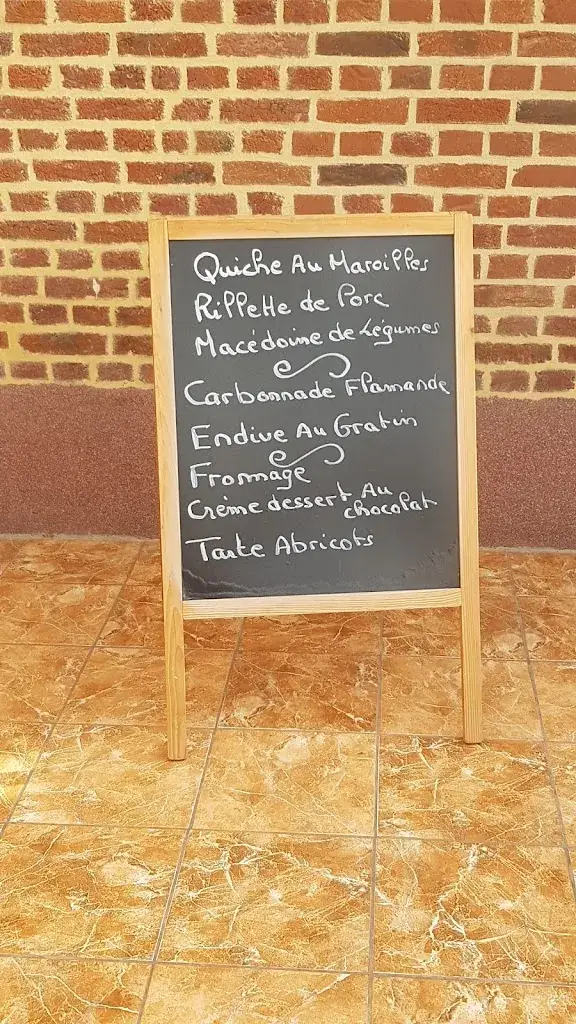 Quiche Au Maroilles
Rillette de Porc
Macédoine de Légumes
Carbonnade Flamande
Endive Au Gratin
Fromage
Crème dessert Au chocolat
Tarte Abricots